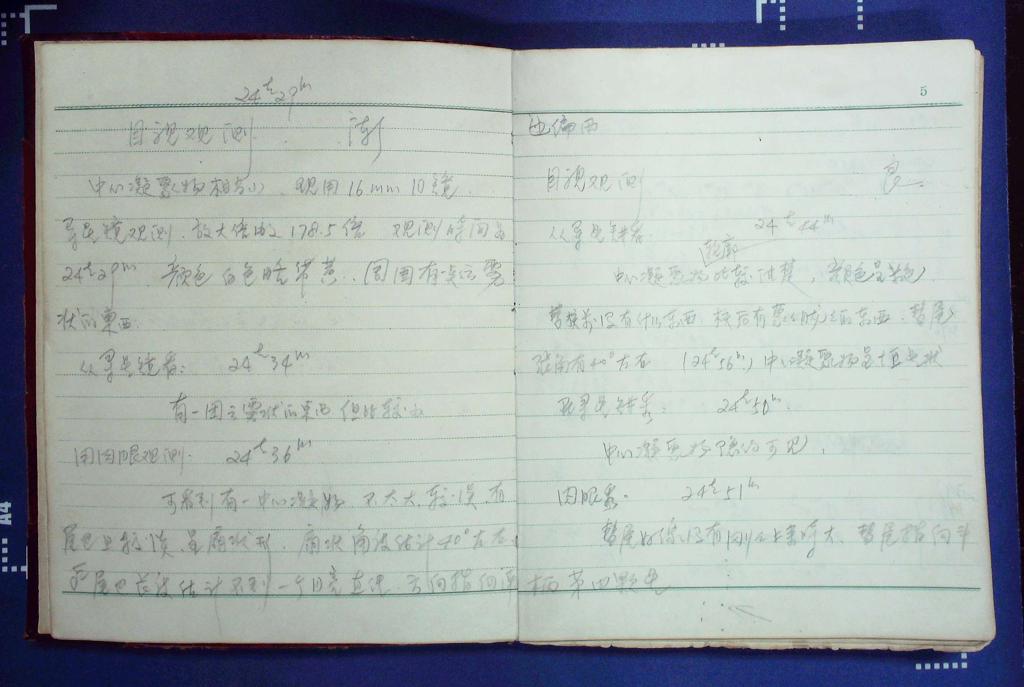 24ʰ29ᵐ
目视观测 陈
中心凝聚物相当小、现用16mm 10镜
寻彗镜观测、放大倍数178.5倍 观测时间为
24ʰ29ᵐ 颜色白色略带黄、周围有一点云雾
状的东西
从寻彗镜看: 24ʰ34ᵐ
有一团云雾状的东西 但比较小
用肉眼观测: 24ʰ36ᵐ
可看到有一中心凝聚物 不太大、较淡、有
尾巴且较淡 呈扇状形、扇状角度估计40°左右
尾巴长度估计不到一个月亮直径、方向指向西
5
也偏西
目视观测 良
从寻彗镜看: 24ʰ44ᵐ
轮廓
中心凝聚物比较清楚,颜色呈黄色
彗核前没有什么东西 核后有雾状的东西、彗尾
张角有40°左右 (24ʰ56ᵐ) 中心凝聚物呈恒星状
24ʰ50ᵐ
中心凝聚物隐约可见,
肉眼看: 24ʰ51ᵐ
彗尾好像没有刚上来时大、彗尾指向斗
柄第四颗星
A4